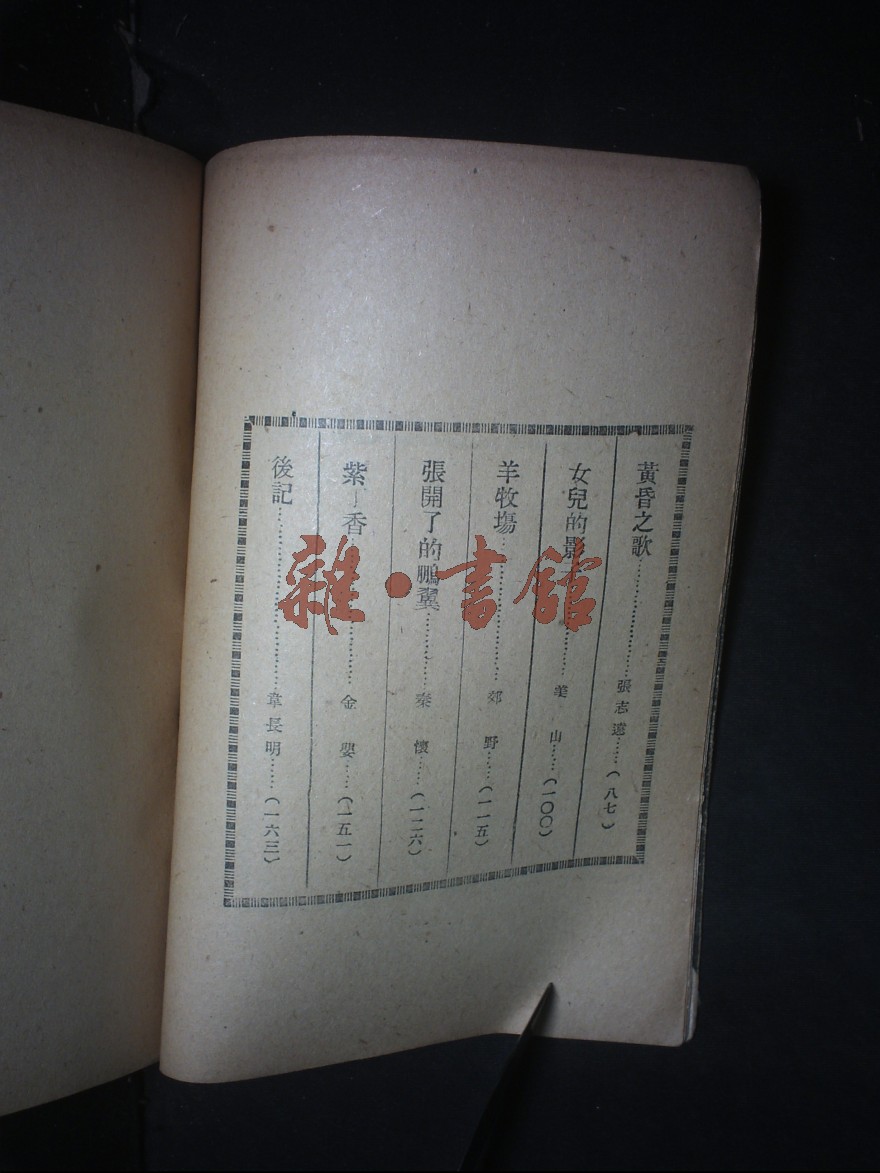 黃昏之歌……………張志遠……(八七)
女兒的影……美山……(一〇〇)
羊牧場……………郊野……(一一五)
張開了的鵬翼…………秦懷……(一二六)
紫丁香……………金嬰……(一五一)
後記…………………韋長明……(一六三)
雜·書館